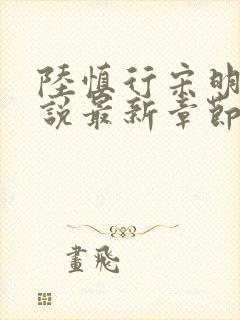 陸慎行宋明
說最新章節
畫飛